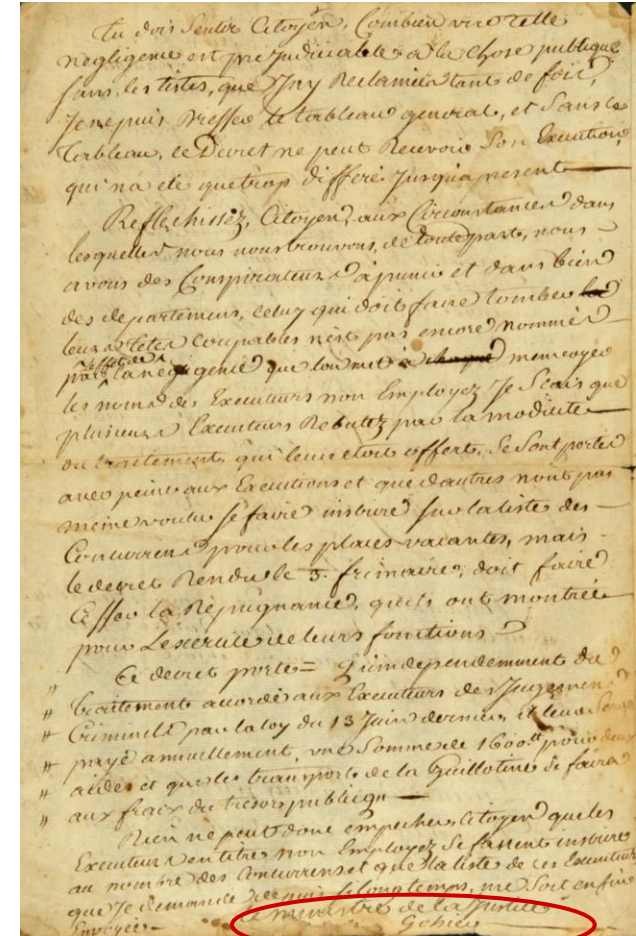 Tu dois Sentir Citoyen, Combien une telle
negligence est prejudiciable a la chose publique
sans les listes, que J'ay Reclamées tant de fois,
Je ne puis Dresser le tableau general, et Sans le
tableau, le Decret ne peut Recevoir Son Execution,
qui n'a eté que trop differé Jusqu'a present
Reflechissez, Citoyen, aux Circonstances dans
lesquelles nous nous trouvons, de toute part, nous
avons des Conspirateurs a punir et dans bien
des departemens, celuy qui doit faire tomber
leurs têtes coupables n'est pas encore nommé
par l'effet de la negligence que l'on met a m'envoyer
les noms des Executeurs non Employez Je Scais que
plusieurs Executeurs Rebutez par la modicité
du traitement qui leur etoit offert, Se Sont portés
avec peine aux Executions et que d'autres n'ont pas
meme voulu se faire inscrire sur la liste des
Concurrens pour les places vacantes, mais
le decret Rendu le 3 frimaire, doit faire
Cesser la Repugnance, qu'ils ont montrée
pour L'exercice de leurs fonctions
Ce decret porte = qu'independemment du
" traitement accordé aux Executeurs des Jugemens
" Criminels par la loy du 13 Juin dernier, il leur Sera
" payé annuellement, une Somme de 1600 tt pour deux
" aides et que les transports de la Guillotine Se faira
" aux fraix du tresors publique
Rien ne peut donc empecher Citoyen que les
Executeurs en titre non Employez Se fassent inscrire
au nombre des Concurrens et que la liste de ces Executeurs
que Je demande depuis Si longtemps, me Soit enfin
Envoyée
Le ministre de la Justice
Gohier